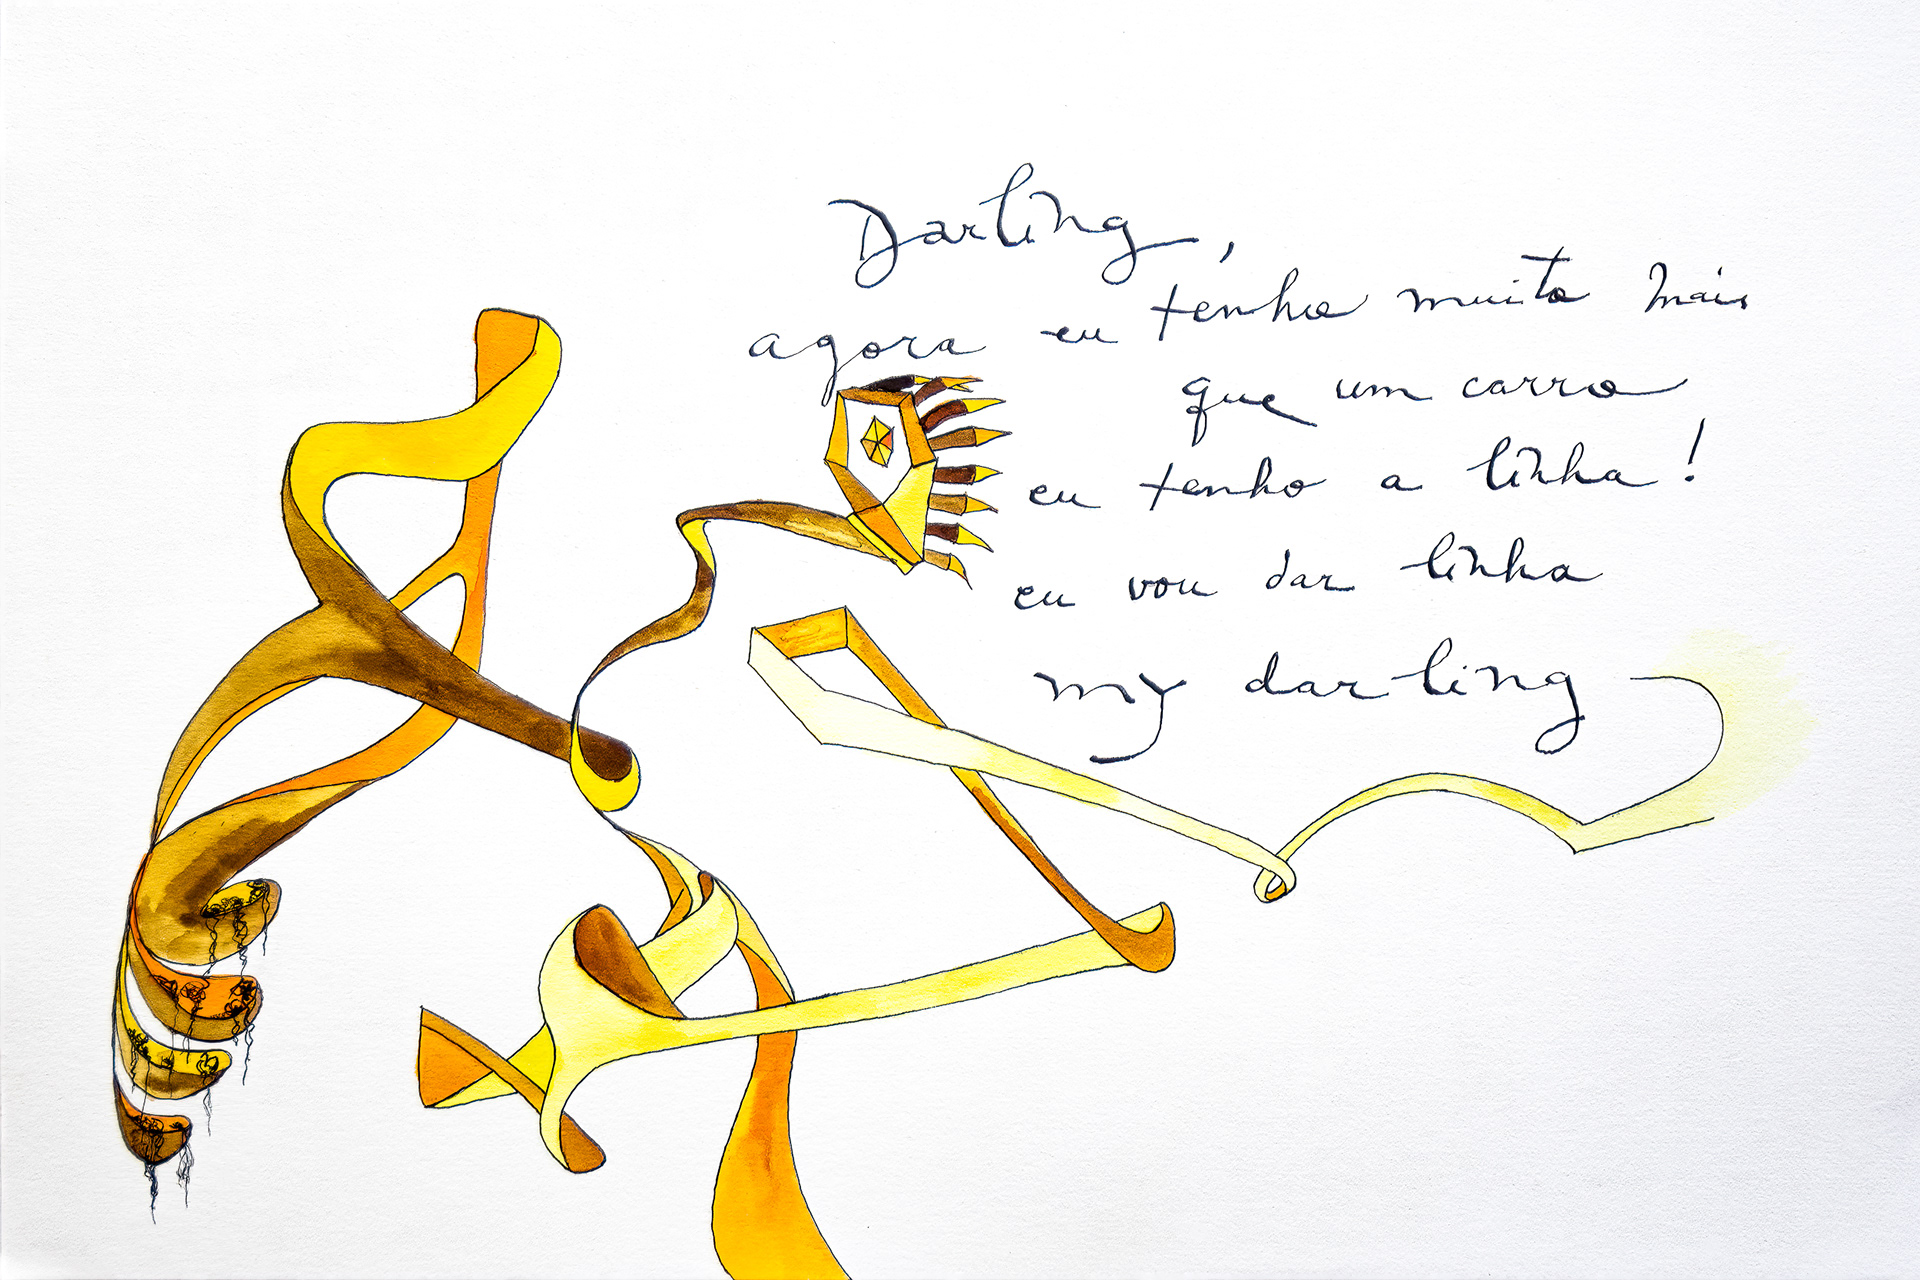 Darling,
agora eu tenho muito mais
que um carro
eu tenho a linha!
eu vou dar linha
my darling